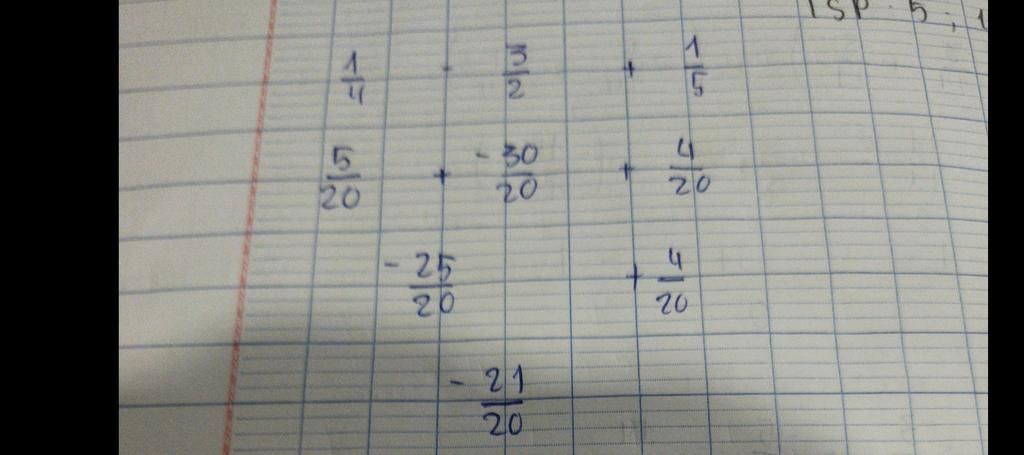 1/4 - 3/2 + 1/5
5/20 + -30/20 + 4/20
-25/20 + 4/20
-21/20